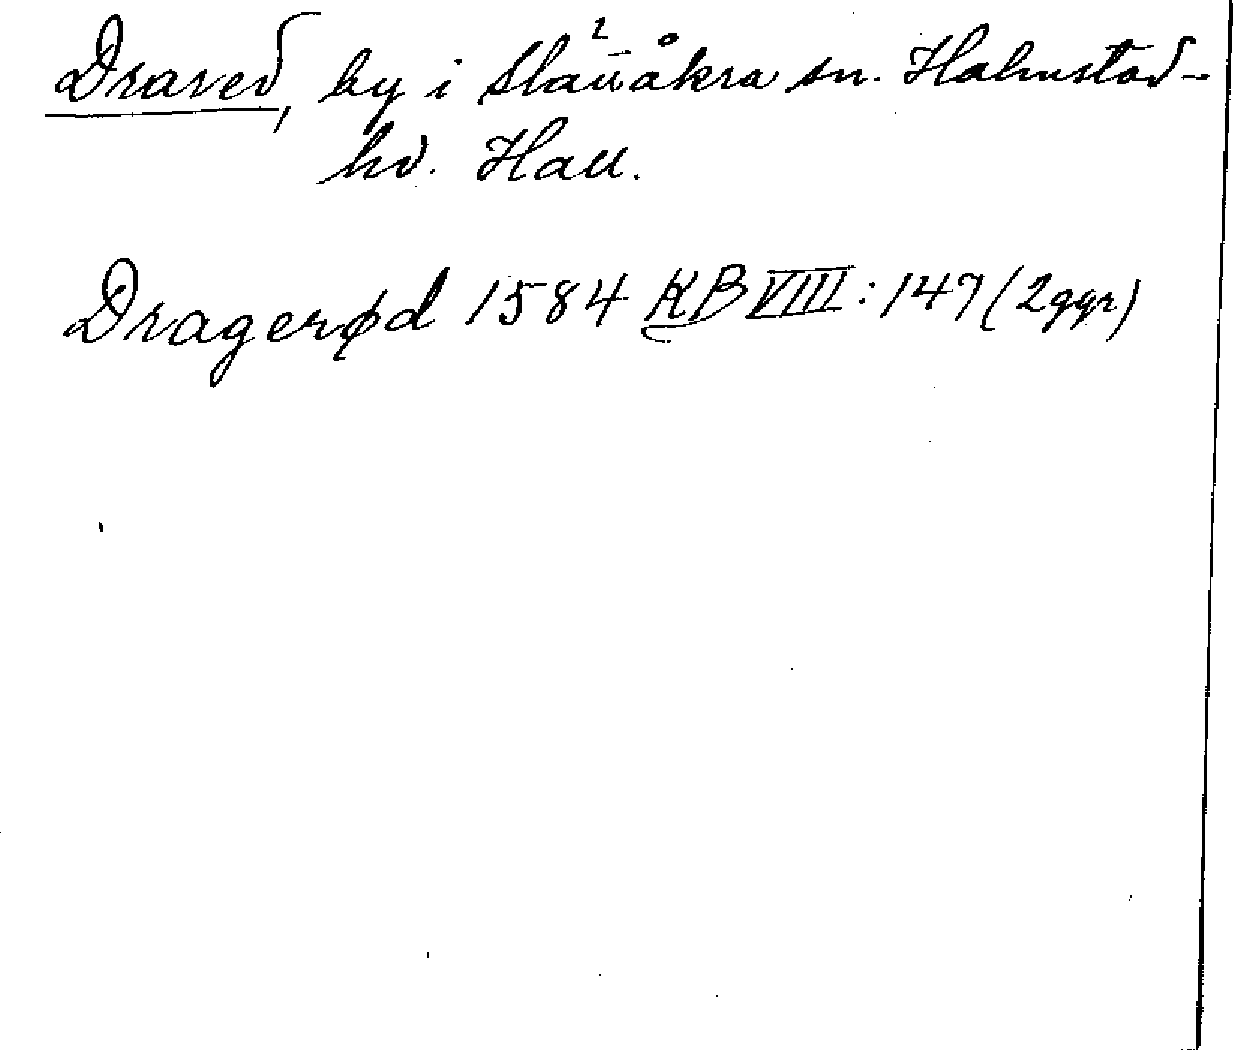 Draved, by i Slättåkra sn. Halmstad-
hd. Hall.
Dragerød 1584 KB VIII:147 (2 ggr)